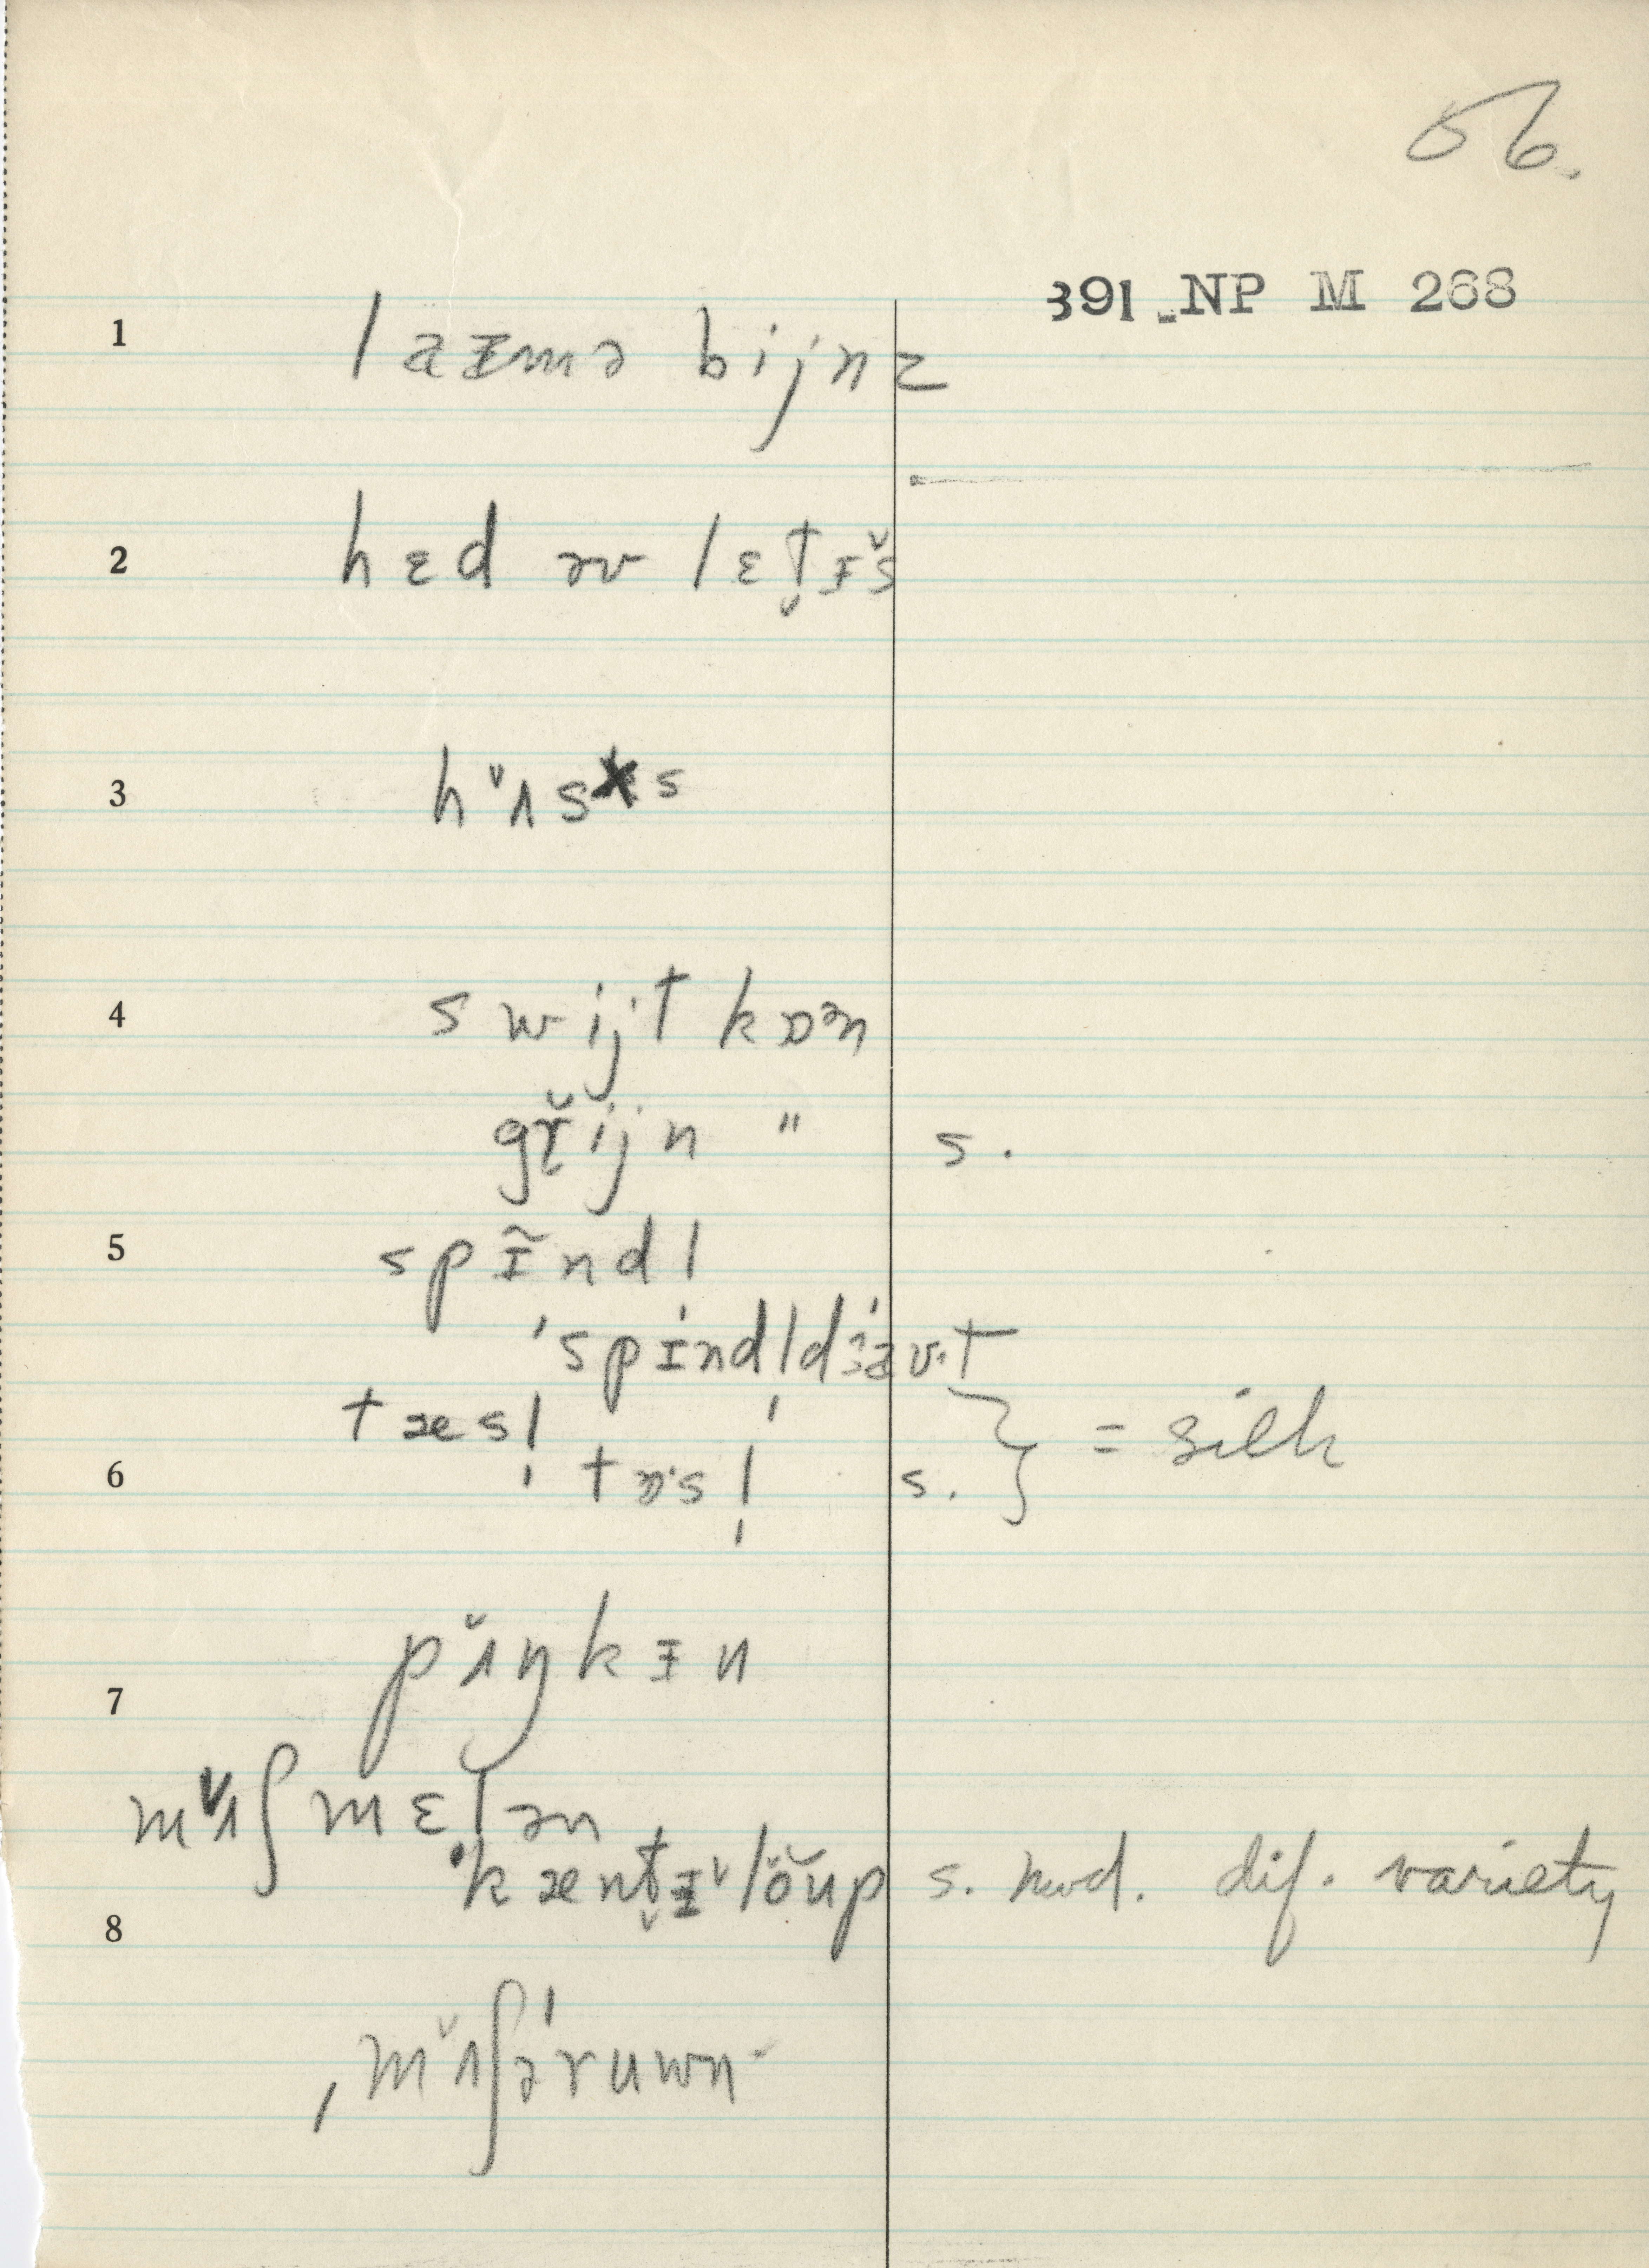 56.
391 NP M 268
1 laɪmə bijnz
2 hɛd əv lɛt̬ɪ̌s
3 hʌ̌s s
4 swijt kɒən
gɤ̆ijn " s.
5 spɪ̃ndl
ˈspɪndl̩dʒavt
tæsl̩
6 tɒ·sl̩ s. } = silk
7 pʌ̌ŋkɪn
mʌ̌ʃmɛlən
ˈkænt̬ɪ̌lŏup s. mod. dif. variety
8
ˌmʌ̌ʃəˈruwn